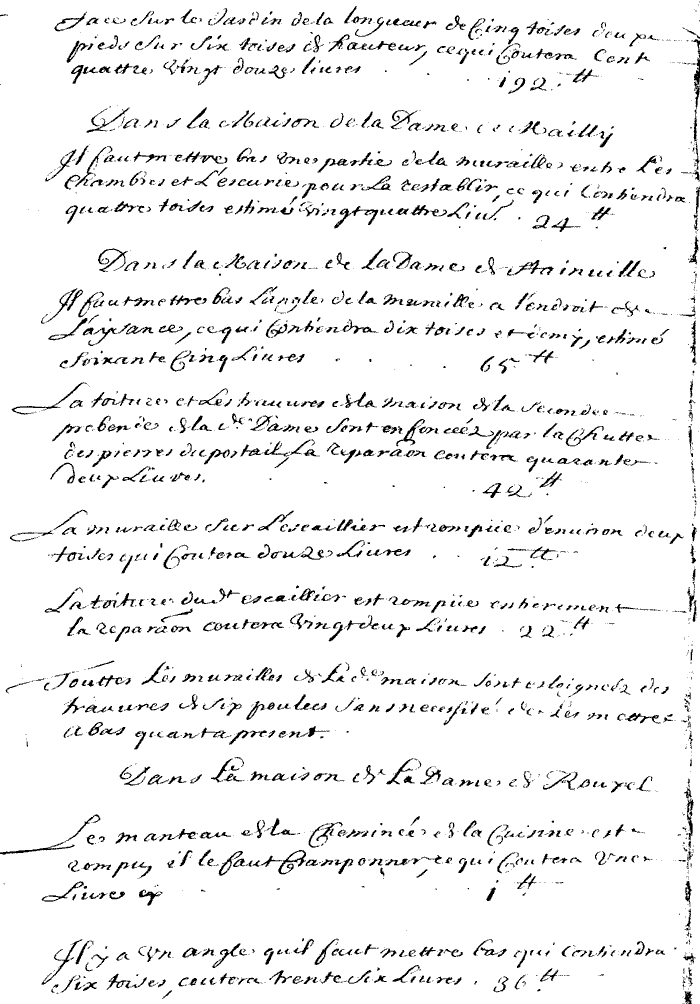 face sur le Jardin de la longueur de Cinq toises deux
pieds sur six toises de hauteur, ce qui Coutera Cent
quattre vingt douze livres . . . 192. tt
Dans la Maison de la Dame de Mailly
Il faut mettre bas une partie de la muraille entre Les
Chambres et L'escurie pour La restablir, ce qui Contiendra
quattre toises estimé vingt quattre Liv. . 24 tt
Dans la Maison de La Dame de Stainville
Il faut mettre bas L'angle de la muraille a l'endroit de
L'aysance, ce qui Contiendra dix toises et demy, estimé
Soixante Cinq Livres . . . 65 tt
La toiture et Les travures de la maison de la seconde
prebende de la de. Dame sont enfoncéez par la Chutte
des pierres du portail, La reparãon coutera quarante
deux Livres. . 42 tt
La muraille sur L'escaillier est rompüe d'environ deux
toises qui Coutera douze Livres . . 12 tt
La toiture du dt escaillier est rompüe entierement
la reparãon coutera vingt deux Livres . 22 tt
Touttes Les murailles de La de. maison sont esloignéez des
travures de six poulces sans necessité de Les mettre
a bas quant a present.
Dans La maison de La Dame de Rouxel
Le manteau de la Cheminée de la Cuisine est
rompu, il le faut Cramponner, ce qui Coutera Une
Livre . . . 1 tt
Il y a un angle qu'il faut mettre bas qui Contiendra
Six toises, coutera trente Six Livres . 36 tt